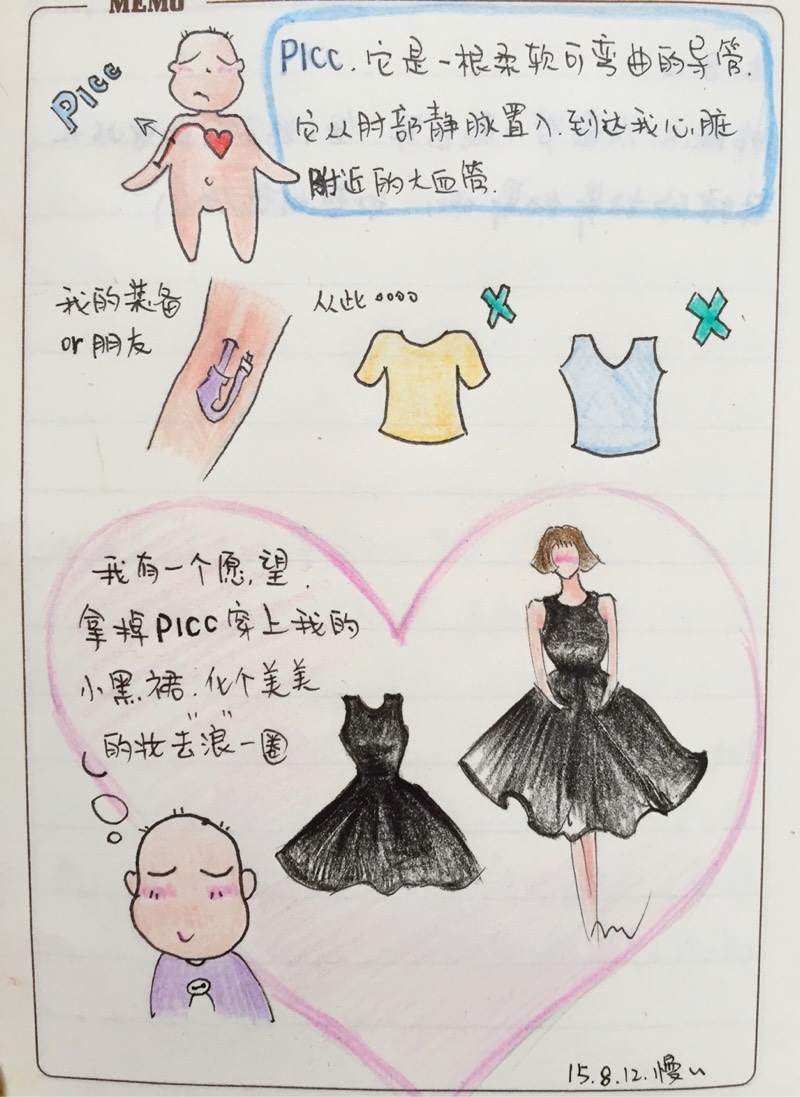 MEMO
PICC
PICC.它是一根柔软可弯曲的导管.
它从肘部静脉置入.到达我心脏
附近的大血管.
我的装备
or朋友
从此。。。。
我有一个愿望.
拿掉PICC穿上我的
小黑裙.化个美美
的妆去"浪"一圈
15.8.12.慢